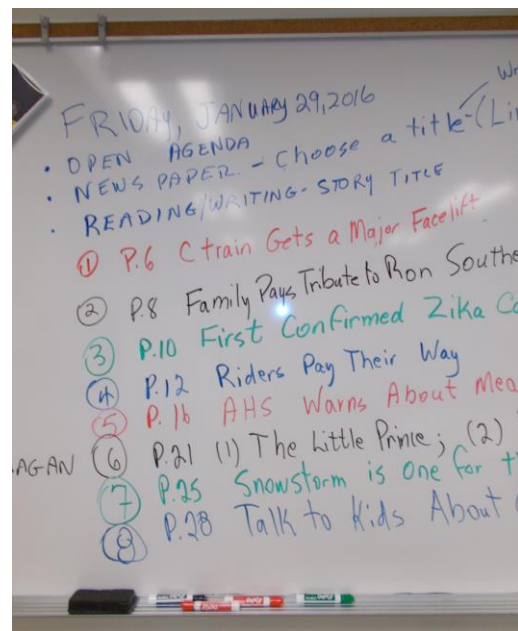 FRIDAY, JANUARY 29, 2016
• OPEN AGENDA
• NEWS PAPER. - Choose a title - (Lin
• READING/WRITING - STORY TITLE
① P.6 Ctrain Gets a Major Facelift
② P.8 Family Pays Tribute to Ron Southe
③ P.10 First Confirmed Zika Ca
④ P.12 Riders Pay Their Way
⑤ P.16 AHS Warns About Mea
AGAN ⑥ P.21 (1) The Little Prince; (2)
⑦ P.25 Snowstorm is one for th
⑧ P.28 Talk to Kids About